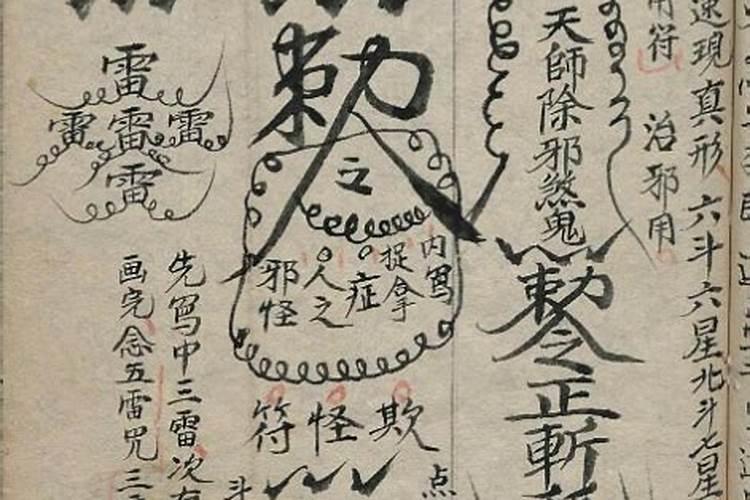 速現真形六斗六星北斗七星
用符
治邪用
天師除邪煞鬼
勅令正斬
勅
之
内寫
捉拿
症
人之
邪怪
欺怪符
点
斗
雷
雷雷雷
雷
先寫中三雷次
画完念五雷咒三